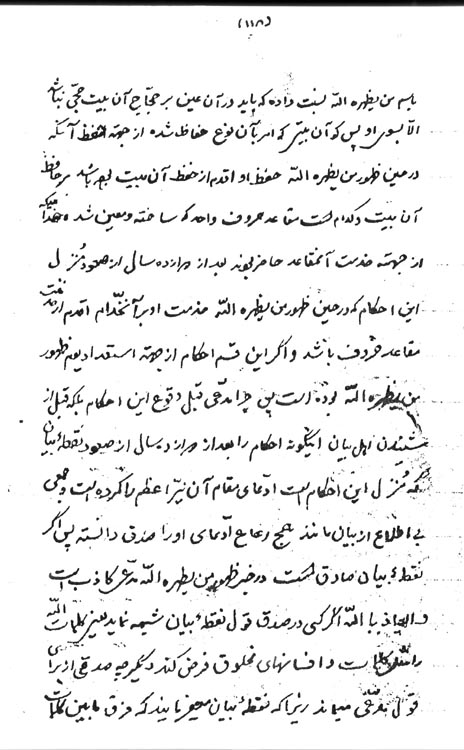 (۱۱۸)
باسم من یظهره الله نسبت داده که باید در آن عین بر حجّاج آن بیت حجّی نباشد
الّا بسوی او پس کو آن بیتی که امر بآن نوع حفاظ شده از جهة حفظ آنکه
در حین ظهور من یظهره الله حفظ او اقدم از حفظ آن بیت بوده باشد بر حافظ
آن بیت و کدام است مقاعد حروف واحد که ساخته و معین شد و خدّامیکه
از جهته خدمت آنمقاعد حاضر بودند بعد از دوازده سال از صعود مُنزل
این احکام که در حین ظهور من یظهره الله خدمت او بر آنخدّام اقدم از خدمت
مقاعد حروف باشد و اگر این قسم احکام از جهته استعداد یوم ظهور
من یظهره الله بوده است پس چرا مدّعی قبل وقوع این احکام بلکه قبل از
شنیدن اهل بیان اینگونه احکام را بعد از دوازده سال از صعود نقطهٔ بیان
که مُنزل این احکام است ادّعای مقام آن نیّر اعظم را کرده است و جمعی
بی اطلاع از بیان مانند همج رعاع ادّعای او را صدق دانسته پس اگر
نقطهٔ بیان صادق است در خبر ظهور من یظهره الله مدّعی کاذب است
و العیاذ بالله اگر کسی در صدق قول نقطهٔ بیان شبهه نماید یعنی کلمات الله
را مثل کلمات و افسانهای مخلوق فرض کند دیگر چه صدقی از برای
قول مدّعی میماند زیرا که نقطهٔ بیان میفرمایند که فرق مابین کلمات